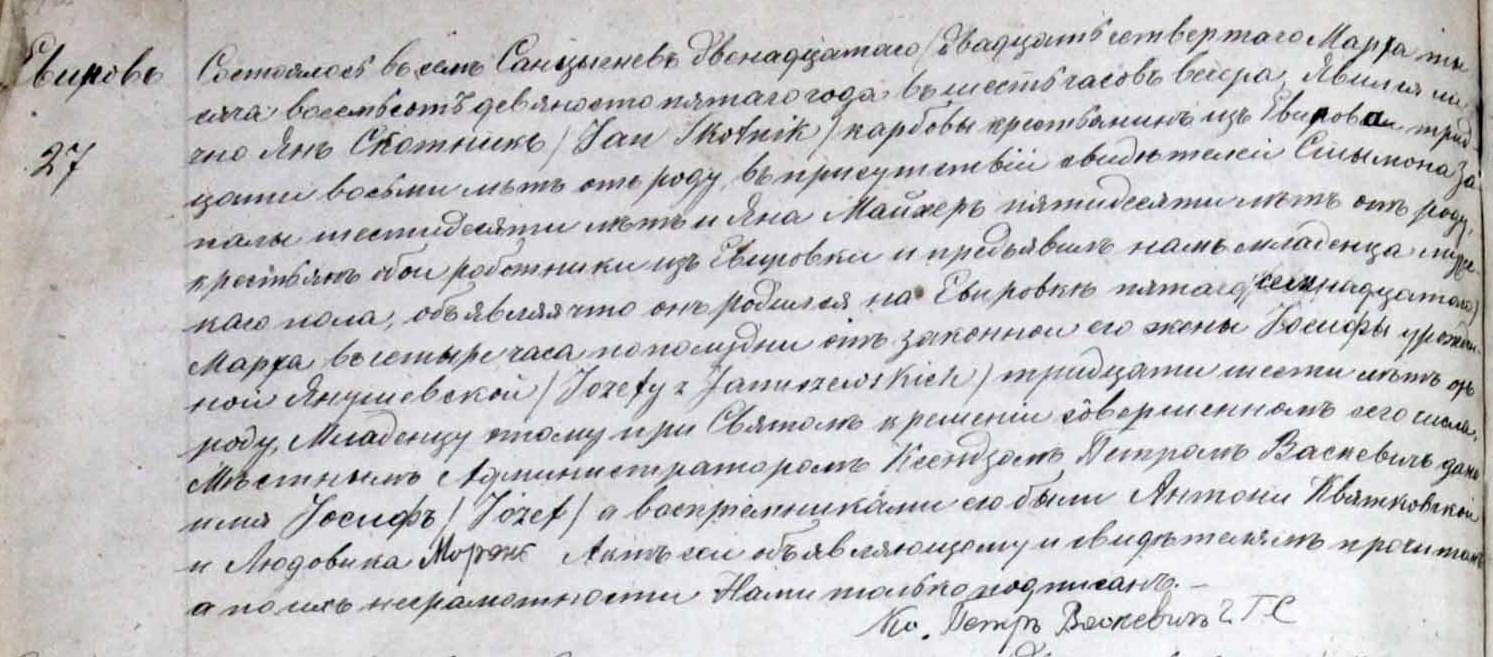 Евировъ
27
Состоялось въ селѣ Санцыгневѣ двенадцатаго / двадцать четвертаго Марта ты
сяча восемьсотъ девяносто пятаго года въ шесть часовъ вечера. Явился ли
чно Янъ Скотникъ / Jan Skotnik / карбовы крестьянинъ изъ Евировки трид
цати восьми лѣтъ отъ роду, въ присутствіи свидѣтелей Сымона За
палы шестидесяти лѣтъ и Яна Майхеръ пятидесяти лѣтъ отъ роду,
крестьянъ обои работники изъ Евировки и предъявилъ намъ младенца муже
каго пола, объявляя что онъ родился на Евировкѣ пятаго / семнадцатаго /
Марта въ четыре часа пополудни отъ законной его жены Іосифы урожден
ной Янушевской / Józefy z Januszewskich / тридцати шести лѣтъ отъ
роду, Младенцу этому при Святомъ крещеніи совершенномъ сего числа,
Мѣстнымъ Администраторомъ Ксендзомъ Петромъ Васкевичъ дано
имя Іосифъ / Józef / а воспріемниками его были Антони Квятковской
и Людовика Актъ сей объявляющому и свидѣтелямъ прочитанъ
а по ихъ неграмотности Нами только подписанъ. –
Кс. Петръ Васкевичъ Ч. Г. С